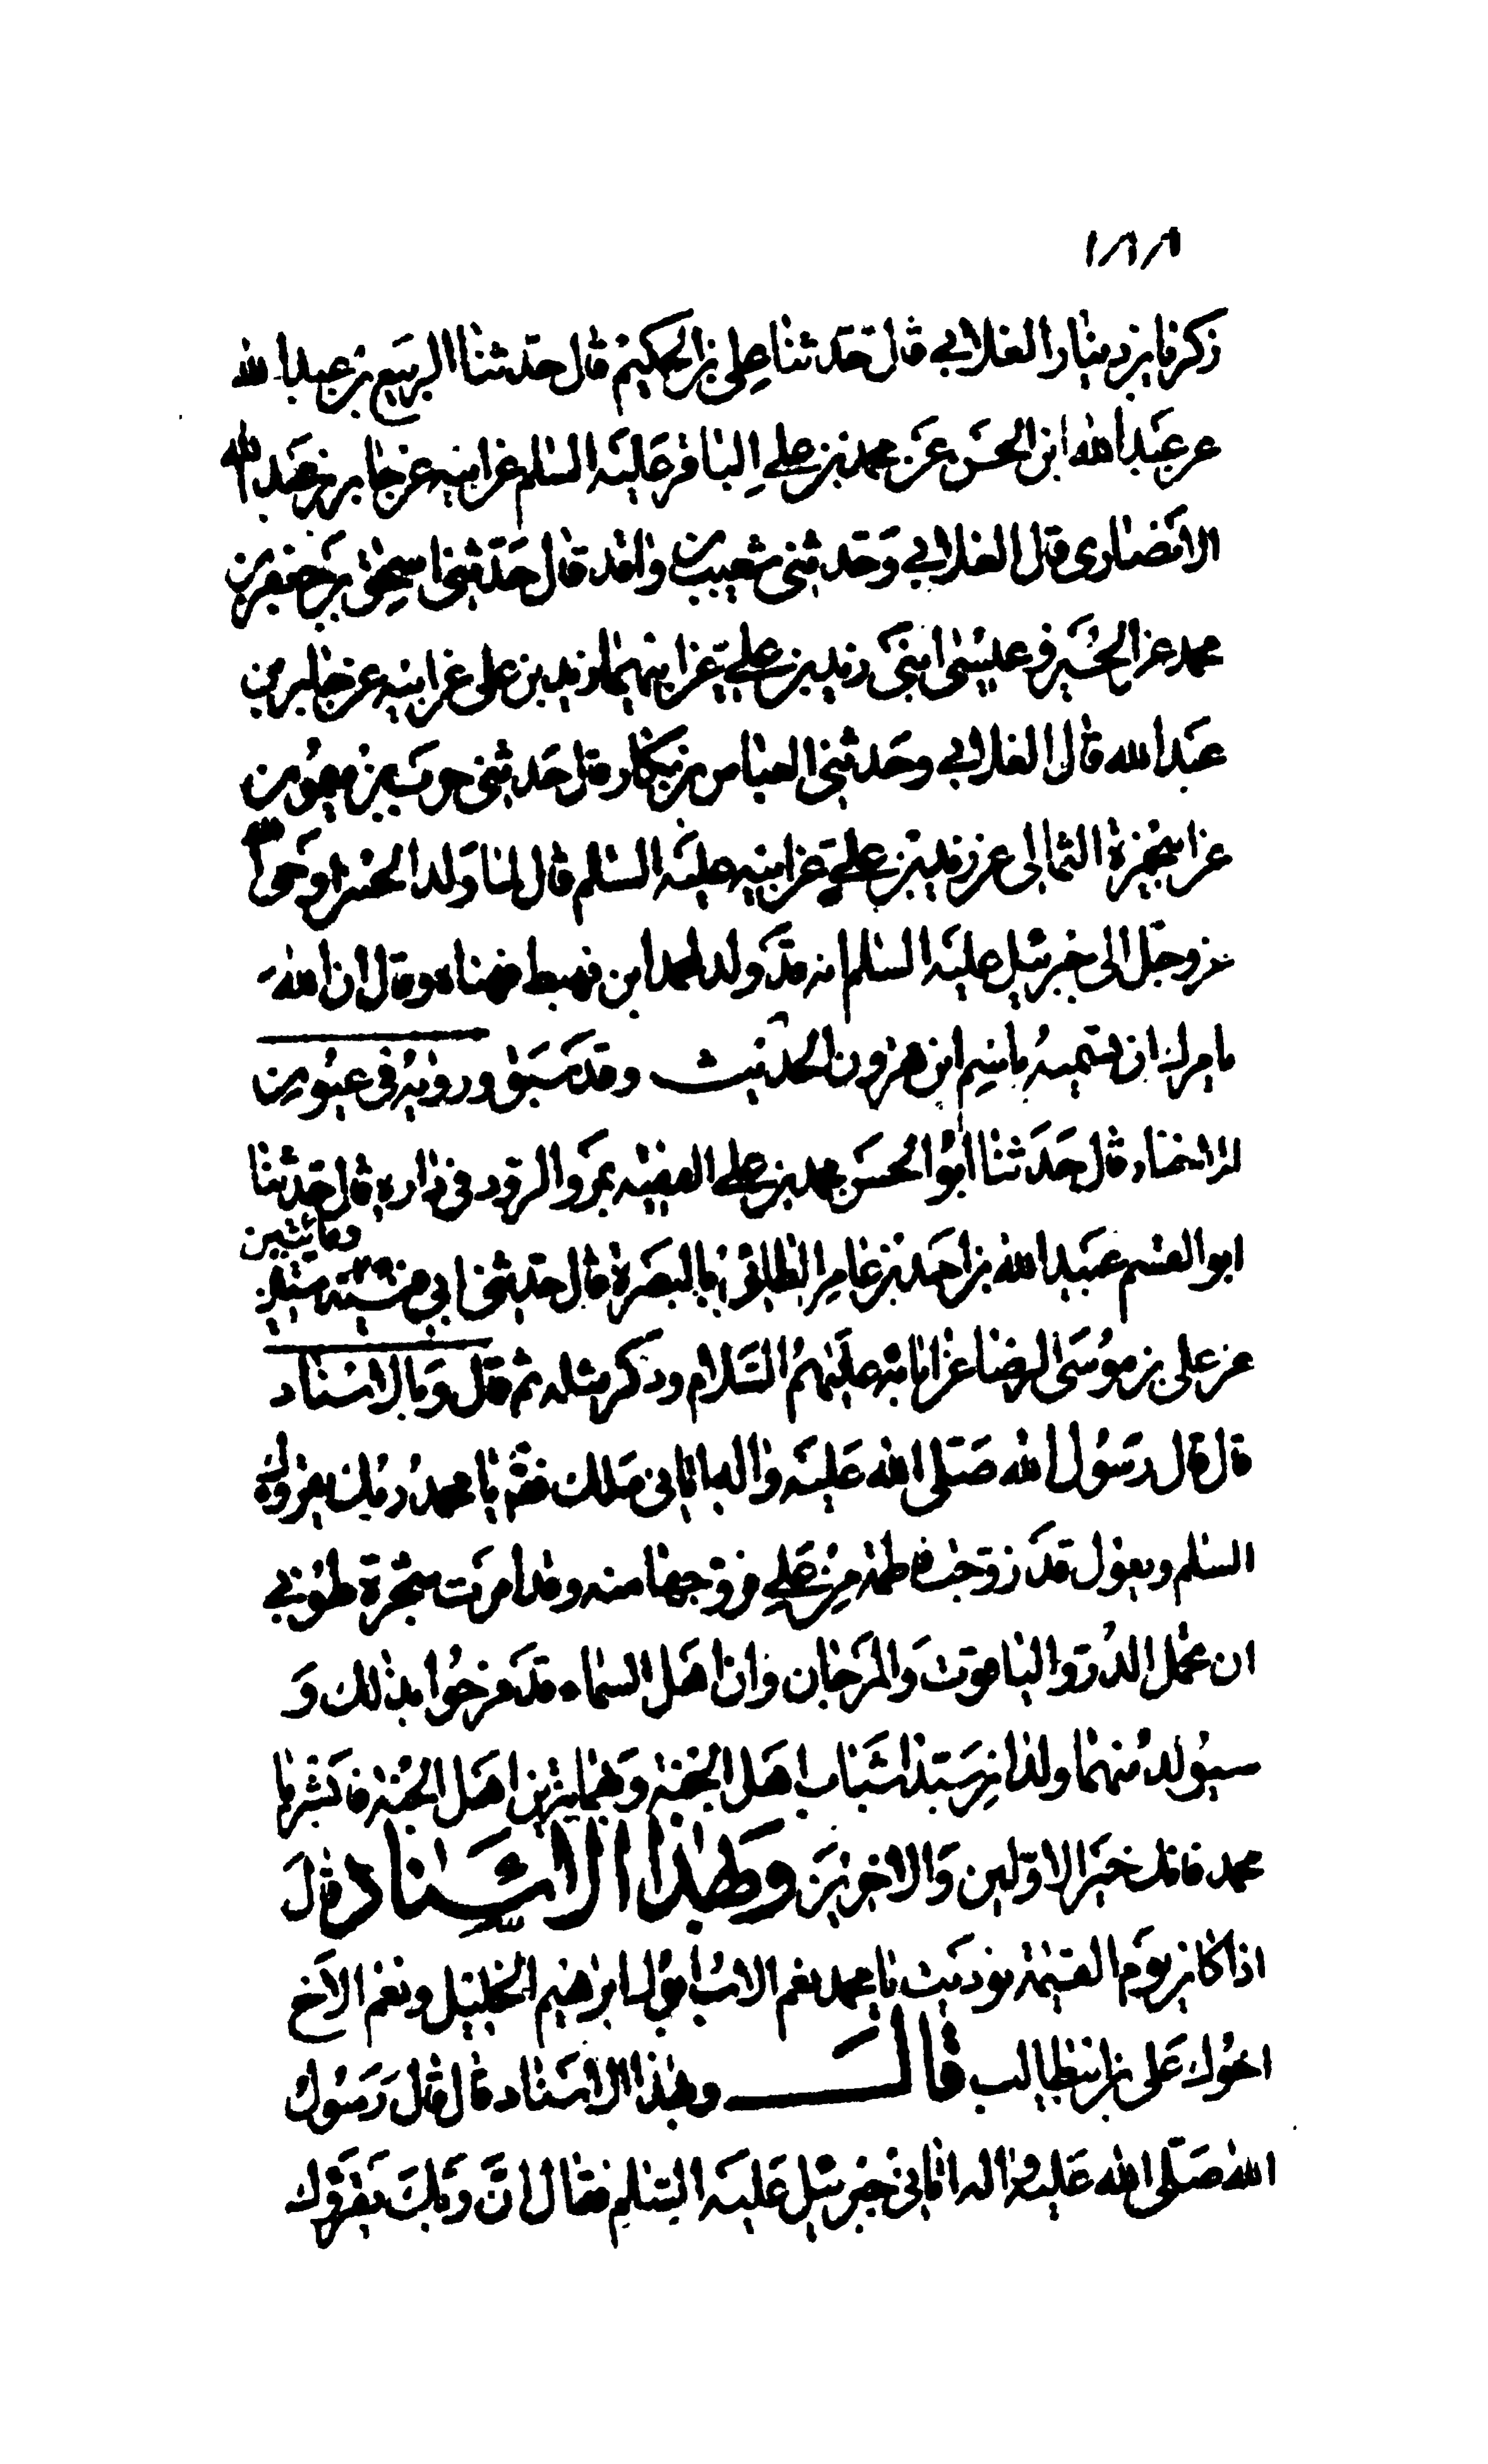 ١٨٨
زكريا بن دينار الغلابي قال حدثنا علي بن الحكيم قال حدثنا الربيع بن عبد الله
عن عبد الله ابن الحسن عن محمد بن علي الباقر عليه السلم عن ابيه عن جابر بن عبد الله
الانصارى قال الغلابي وحدثنى شعيب بن واقد قال حدثنى اسحق بن جعفر بن
محمد عن الحسين بن عيسى ابنى زيد بن علي عن ابيهما زيد بن على عن ابيه عن جابر بن
عبد الله قال الغلابي وحدثنى العباس بن بكار قال حدثنى حرب بن ميمون
عن ابي حمزة الثمالى عن زيد بن علي عن ابيه عليه السلم قال لما ولد الحسن اوحى الله
عز وجل الى جبرئيل عليه السلم انه قد ولد لمحمد ابن فهبط فهناه وقال ان الله
يامرك ان تسميه باسم ابن هرون الحديث وقد سبق ورويه فى عيون
الرضا قال حدثنا ابو الحسن محمد بن علي الفقيه بمرو الرود فى داره قال حدثنا
ابو القسم عبد الله بن احمد بن عامر الطائى بالبصرة قال حدثنى ابي فى سنة ستين ومائتين
عن على بن موسى الرضا عن ابائه عليهم السلام وذكر مثله ثم قال وبالاسناد
قال قال رسول الله صلى الله عليه واله اتانى ملك فقال يا محمد ربك يقرئك
السلم ويقول قد زوجت فاطمة من علي فزوجها منه وقد امرت شجرة طوبي
ان تحمل الدر والياقوت والمرجان وان اهل السماء قد فرحوا بذلك و
سيولد منهما ولدان سيدا شباب اهل الجنة وبهما تزين اهل الجنة فابشر يا
محمد فانك خير الاولين والاخرين وبهذا الاسناد قال
اذا كان يوم القيمة نوديت يا محمد نعم الاب ابوك ابرهيم الخليل ونعم الاخ
اخوك على بن ابيطالب قال وبهذا الاسناد قال قال رسول
الله صلى الله عليه واله اتانى جبرئيل عليه السلم فقال ان ربك يقرئك